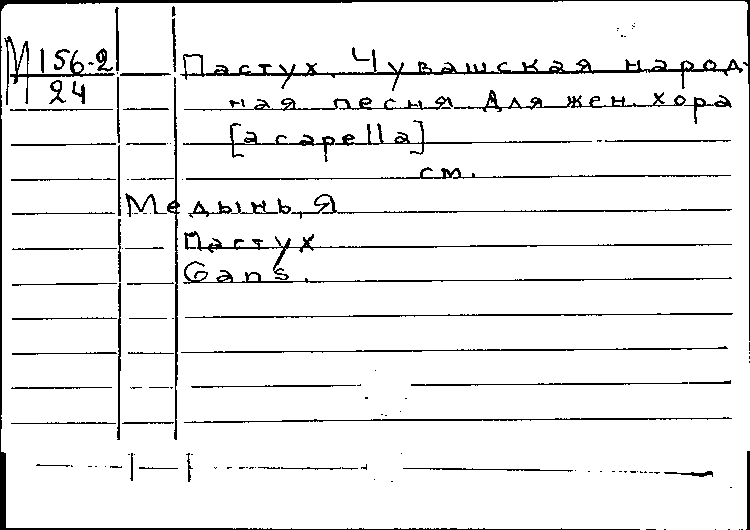 М 156-2
24
Пастух. Чувашская народ-
ная песня для жен. хора
[a capella]
см.
Медынь, Я
Пастух
Gans.